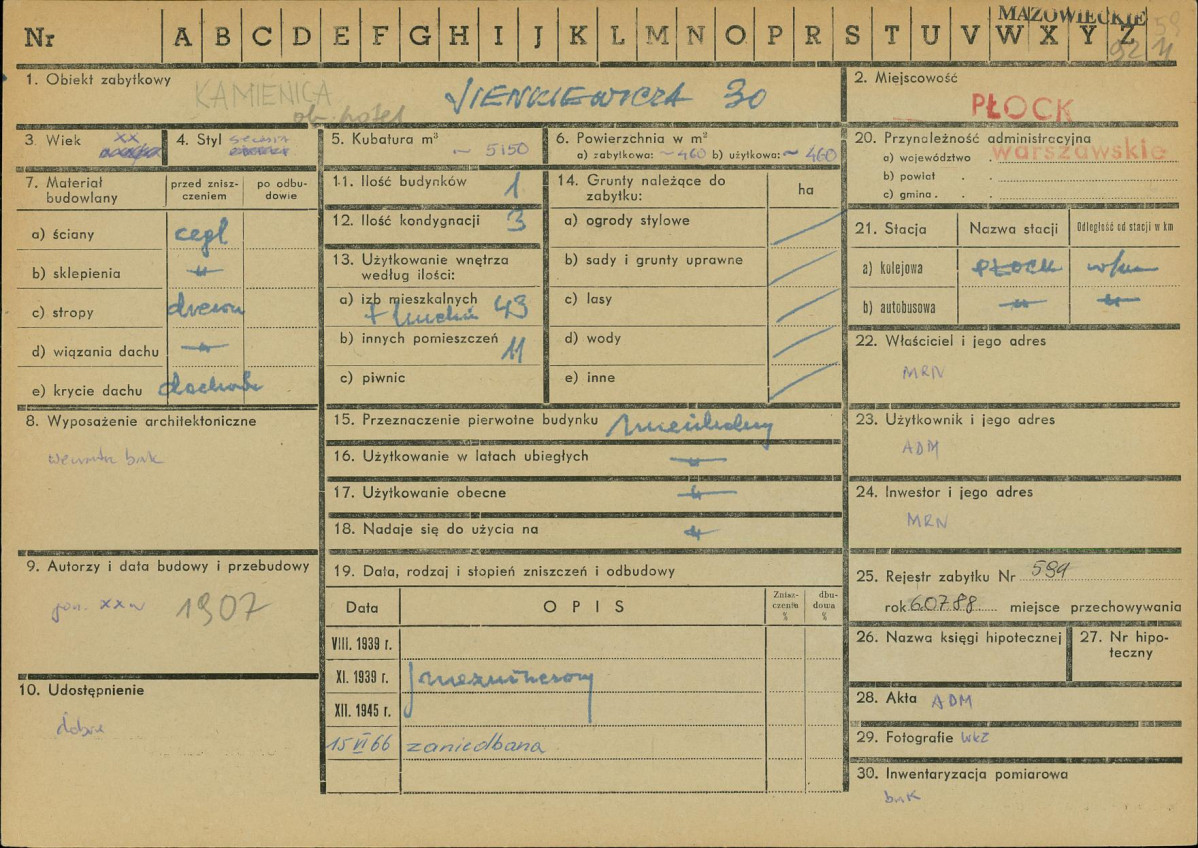 MAZOWIECKIE
Nr A B C D E F G H I J K L M N O P R S T U V W X Y Z
1. Obiekt zabytkowy
KAMIENICA
SIENKIEWICZA 30
2. Miejscowość
PŁOCK
3. Wiek XX
4. Styl secesja
5. Kubatura m³
~ 5150
6. Powierzchnia w m²
a) zabytkowa: ~ 460 b) użytkowa: ~ 460
20. Przynależność administracyjna
a) województwo . warszawskie
b) powiat . .
c) gmina . .
7. Materiał budowlany
przed zniszczeniem
po odbudowie
a) ściany cegł
b) sklepienia -"-
c) stropy drewn
d) wiązania dachu -"-
e) krycie dachu dachówk
11. Ilość budynków 1
12. Ilość kondygnacji 3
13. Użytkowanie wnętrza
według ilości:
a) izb mieszkalnych
+ kuchni 43
b) innych pomieszczeń 11
c) piwnic
14. Grunty należące do
zabytku:
ha
a) ogrody stylowe
b) sady i grunty uprawne
c) lasy
d) wody
e) inne
21. Stacja
Nazwa stacji
Odległość od stacji w km
a) kolejowa PŁOCK
b) autobusowa -"- -"-
22. Właściciel i jego adres
MRN
8. Wyposażenie architektoniczne
wewnątrz brak
15. Przeznaczenie pierwotne budynku mieszkalny
16. Użytkowanie w latach ubiegłych -"-
17. Użytkowanie obecne -"-
18. Nadaje się do użycia na -"-
23. Użytkownik i jego adres
ADM
24. Inwestor i jego adres
MRN
9. Autorzy i data budowy i przebudowy
pocz. XX w 1907
19. Data, rodzaj i stopień zniszczeń i odbudowy
Data
OPIS
Zniszczeniu %
dbudowa %
VIII. 1939 r.
XI. 1939 r. niezniszczony
XII. 1945 r.
15 VI 66 zaniedbana
25. Rejestr zabytku Nr 594
rok 6.07.88 miejsce przechowywania
26. Nazwa księgi hipotecznej
27. Nr hipoteczny
10. Udostępnienie
dobre
28. Akta ADM
29. Fotografie WKZ
30. Inwentaryzacja pomiarowa
brak